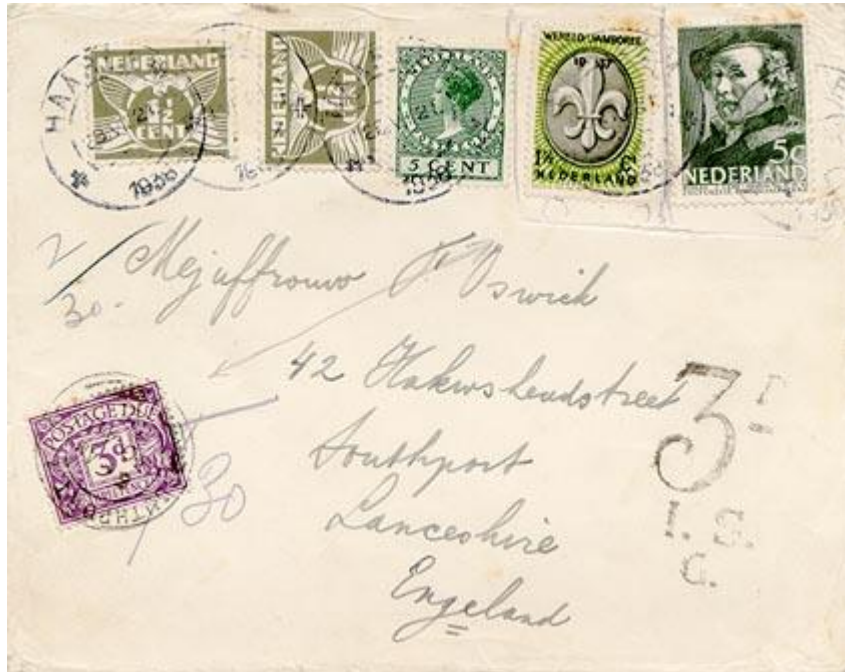 NEDERLAND
½
CENT
NEDERLAND
NEDERLAND
5 CENT
WERELD-JAMBOREE
1937
1½ Ct
NEDERLAND
5c
NEDERLAND
HAA
1938
1938
2/
30.-
Mejuffrouw Oswick
42 Hakwsheadstreet
Southport
Lanceshire
Engeland
POSTAGE DUE
3d
30
3D
I. S.
G.